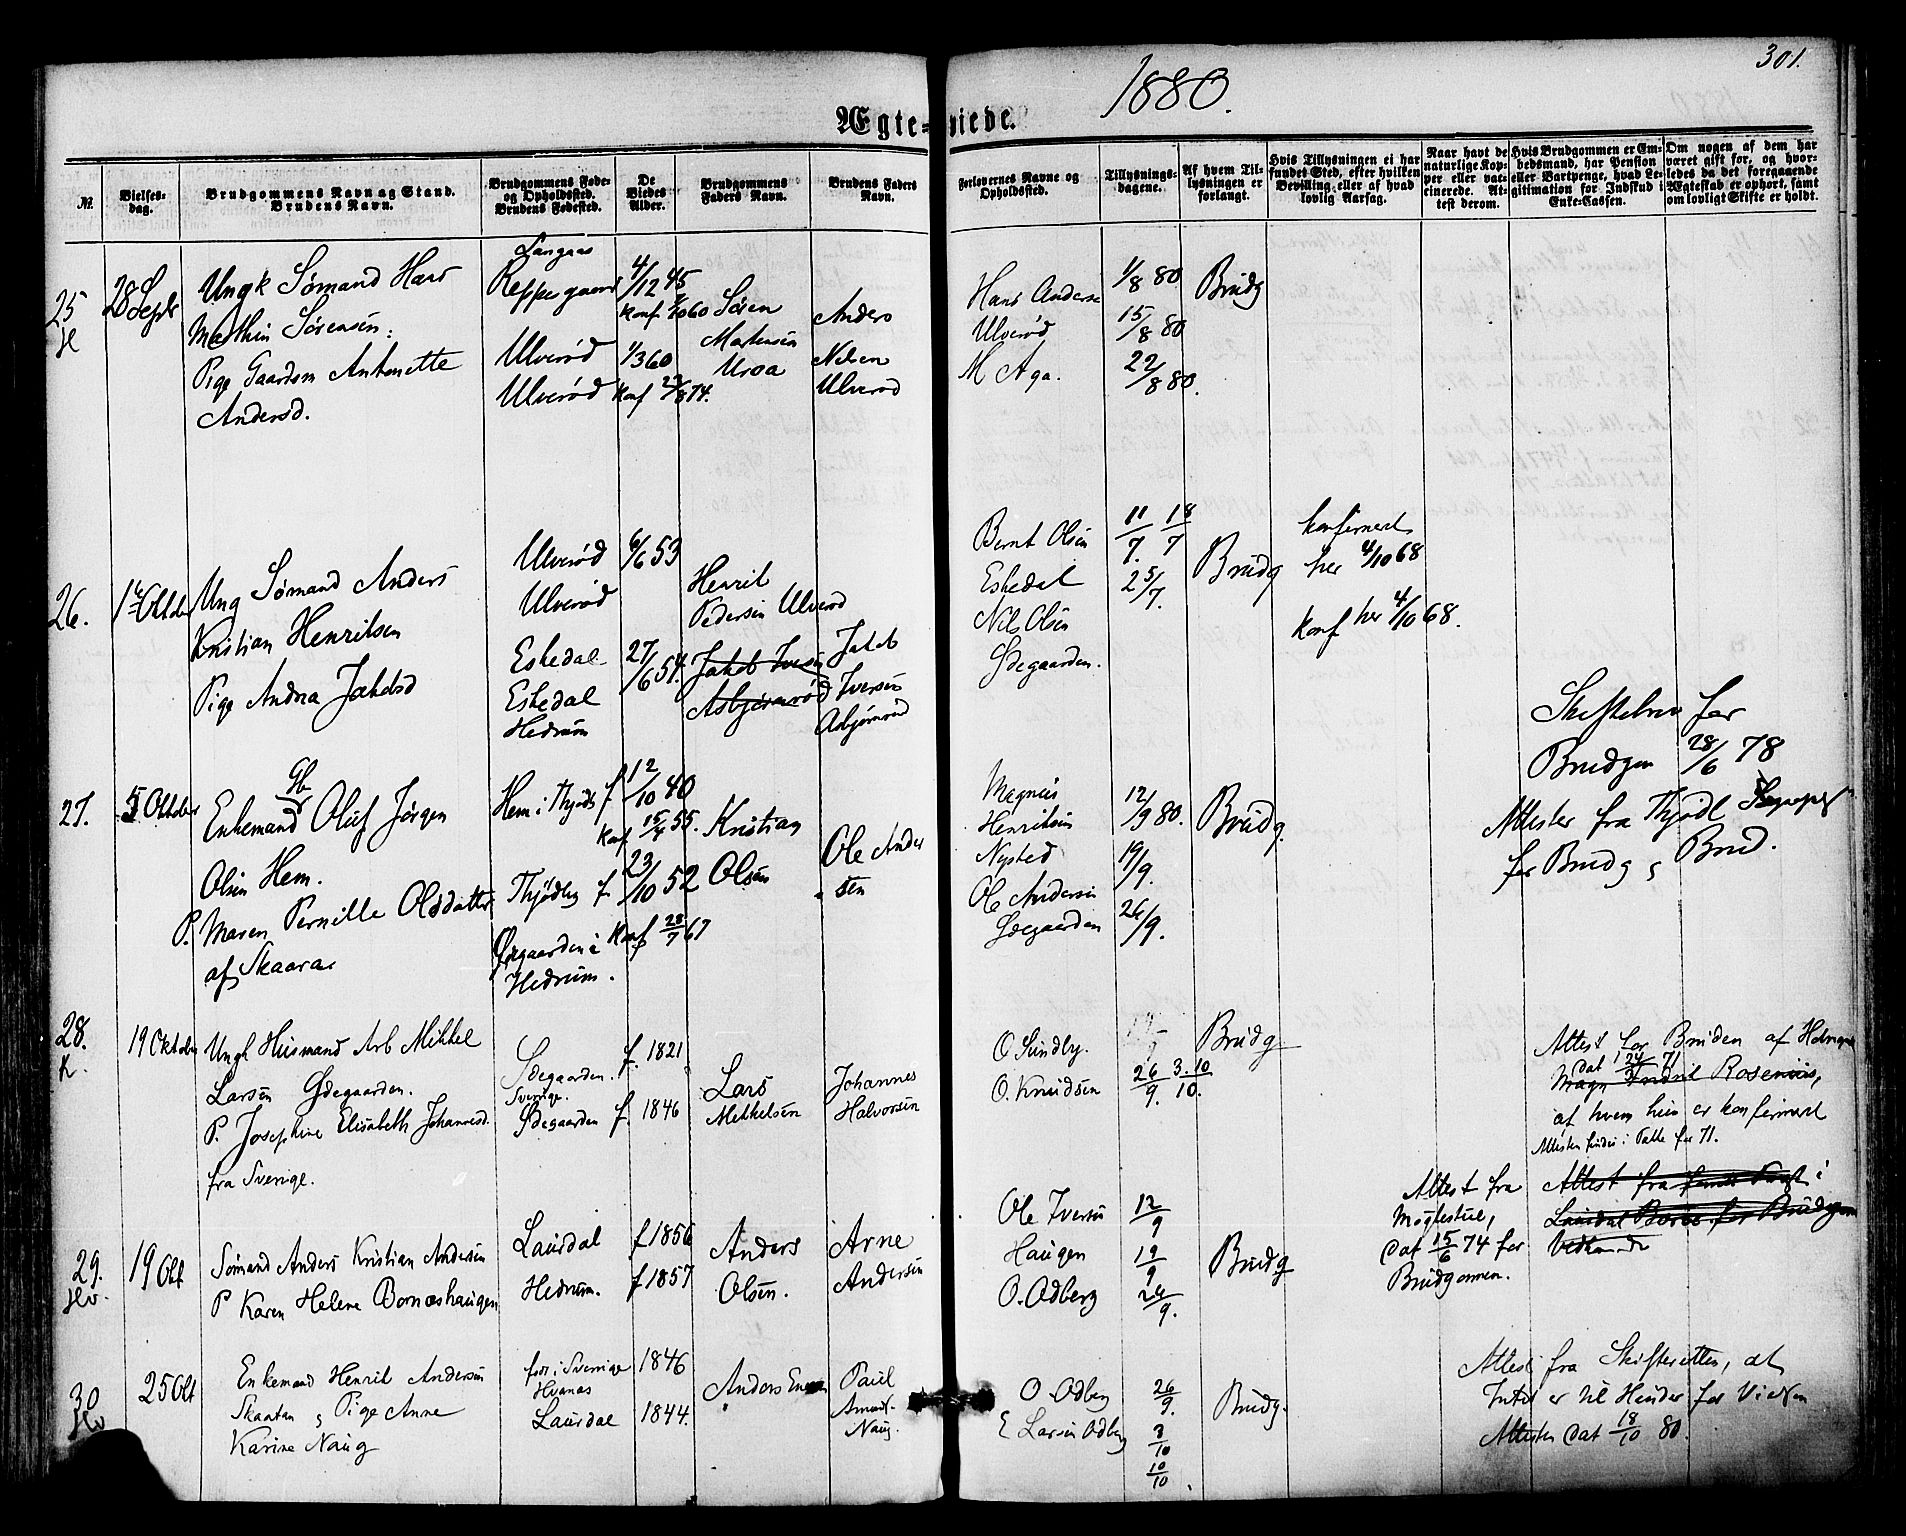 301.
1880.
Ægte-viede.
No.
Vielses-
dag.
Brudgommens Navn og Stand.
Brudens Navn.
Brudgommens Føde-
og Opholdssted.
Brudens Fødested.
De
Viedes
Alder.
Brudgommens
Faders Navn.
Brudens Faders
Navn.
Forlovernes Navne og
Opholdssted.
Tillysnings-
dagene.
Af hvem Til-
lysningen er
forlangt.
Hvis Tillysningen ei har
fundet Sted, efter hvilken
Bevilling eller af hvad
lovlig Aarsag.
Naar havt de
naturlige Kop-
per eller vac-
cinerede. At-
test derom.
Hvis Brudgommen er Em-
bedsmand, har Pension
eller Vartpenge, hvad Le-
gitimation for Indskud i
Enke-Cassen.
Om nogen af dem har
været gift før, og hvor-
ledes da det foregaaende
Ægteskab er ophørt, samt
om lovligt Skifte er holdt.
25
28 Septr
Ungk Sømand Hans
Mathin Sørensen:
Pige Gaardsm Antonette
Andersd.
Langaas
Reppegaard
Ulverød
Ulverød
4/12 45
Konf 60
1/3 60
Konf 74.
Søren
Martensen
Uroa
Anders
Nelsen
Ulverød
Hans Anderse
Ulverød
M Aga.
1/8 80
15/8 80
22/8 80.
Brudg
26.
1 Oktober
Ung Sømand Anders
Kristian Henriksen
Pige Andrea Jakobsd
Ulverød
Ulverød
Eskedal
Eskedal
Hedrum
6/6 53
27/6 54.
Henrik
Pedersen Ulverød
Jakob Iversen
Asbjørnrød
Jakob
Iversen
Asbjørnrød
Bernt Olsen
Eskedal
Nils Olsen
Ødegaarden.
11/7. 18/7
25/7.
Brudg
konfirmert
her 4/10 68
Konf her 4/10 68.
Skiftebrev for
Brudgom 28/6 78
27.
5 Oktober
Enkemand Gbr Oluf Jørgen
Olsen Hem.
P. Maren Pernille Olsdatter
af Skaarar
Hem i Thjøds f
Thjødling f
Ødegaarden i
Hedrum.
12/10 40
Konf 15/4 55.
23/10 52
Konf 28/7 67
Kristian
Olsen
Ole Ander
sen
Magnus
Henriksen
Nysted
Ole Andersen
Ødegaarden
12/9 80.
19/9.
26/9.
Brudg.
Attester fra Thjødl
for Brudg g Brud.
28.
K.
19 Oktober
Ungk Husmand Arb Mikkel
Larsen Ødegaarden.
P. Josephine Elisabeth Johannesd.
fra Sverige.
Ødegaarden.
Sverige.
Ødegaarden
f. 1821
f 1846
Lars
Mekkelsen
Johannes
Halvorsen
O Sundby.
O. Knudsen
26/9. 3.10/10.
Brudg
Attest for Bruden af
dat 24 71
Rosenius,
af hvem hun er konfirmert
Attesten findes i Pakke for 71.
29.
Hv.
19 Okt
Sømand Anders Kristian Andersen
P Karen Helene Bornæshaugen
Laurdal
Hedrum.
f 1856
f 1857
Anders
Olsen.
Arne
Andersen
Ole Iversen
Haugen
O. Odberg
12/9
19/9
26/9.
Brudg
Attest fra
Moglestue,
dat 15/6 74 for
Brudgommen.
Attest fra
Laurdal for Brudgom
30
Hv
25 Okt
Enkemand Henrik Andersen
Skaatan g Pige Anne
Karine Naug
født i Sverige
Laurdal
1846
1844.
Anders
Paul
Naug.
O Odberg
E Larsen Odberg
26/9.
3/10
10/10
Brudg.
Attest fra Skifteretten, at
Intet er til Hinder for Vielsen
Attesten dat 18/10 80.